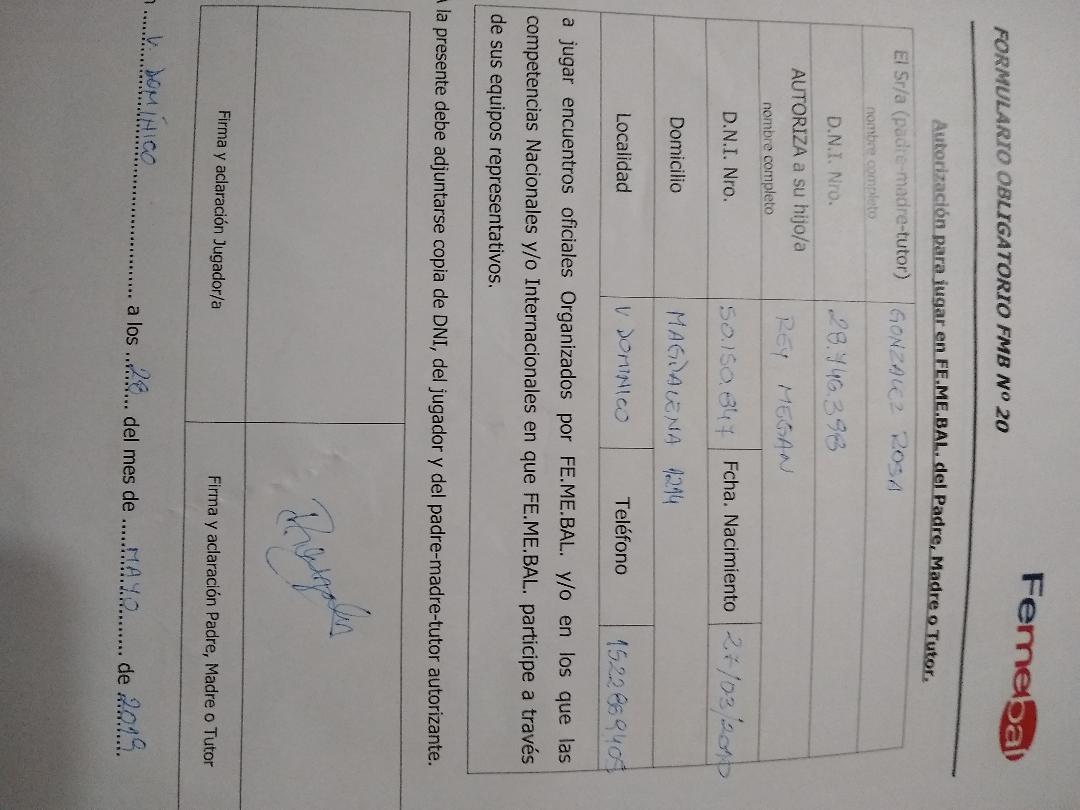 Femebal
FORMULARIO OBLIGATORIO FMB Nº 20
Autorización para jugar en FE.ME.BAL. del Padre, Madre o Tutor.
El Sr/a (padre-madre-tutor) GONZALEZ ROSA
nombre completo
D.N.I. Nro. 28.446.398
AUTORIZA a su hijo/a REY MEGAN
nombre completo
D.N.I. Nro. 50.150.847 Fcha. Nacimiento 27/03/2010
Domicilio MAGDALENA 1214
Localidad V DOMINICO Teléfono 1522869405
a jugar encuentros oficiales Organizados por FE.ME.BAL. y/o en los que las
competencias Nacionales y/o Internacionales en que FE.ME.BAL. participe a través
de sus equipos representativos.
A la presente debe adjuntarse copia de DNI, del jugador y del padre-madre-tutor autorizante.
Firma y aclaración Jugador/a Firma y aclaración Padre, Madre o Tutor
V. DOMÍNICO a los 28 del mes de MAYO de 2019